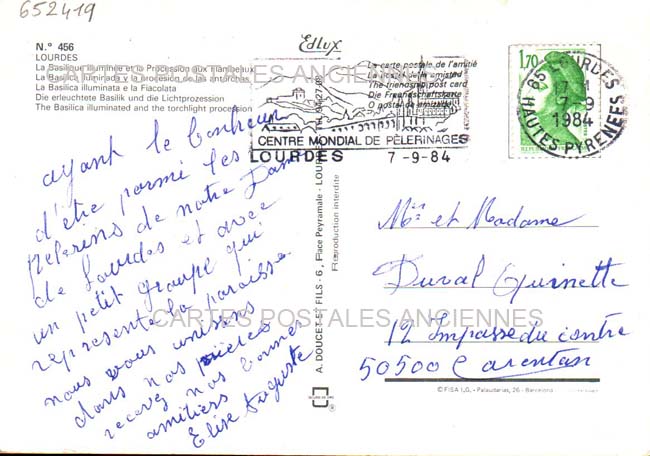 652419
N.º 456
LOURDES
La Basilique illuminée et la Procession aux flambeaux
La Basílica iluminada y la procesión de las antorchas
La Basilica illuminata e la Fiaccolata
Die erleuchtete Basilik und die Lichtprozession
The Basilica illuminated and the torchlight procession
Edlux
La carte postale de l'amitié
La postal de la amistad
The friendship post card
Die Freundschaftskarte
O postal de amizade
CARTES POSTALES ANCIENNES
CENTRE MONDIAL DE PÈLERINAGES
LOURDES 7-9-84
1,70
65 LOURDES
7-9
1984
HAUTES PYRENEES
ayant le bonheur
d'être parmi les
pelerins de notre Dame
de Lourdes et avec
un petit groupe qui
represente la paroisse
nous vous unissons
dans nos prières
recevez nos bonnes
amitiers
Elise Auguste
A. DOUCET & FILS - 6, Place Peyramale - LOURDES
Reproduction interdite
Mr et Madame
Duval Guinette
12 Impasse du centre
50500 Carentan
CARTES POSTALES ANCIENNES
© FISA I.G. - Palaudarias, 26 - Barcelona